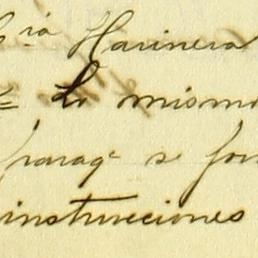 Cia Harinera
= Lo mismo
paraqe se for
instrucciones